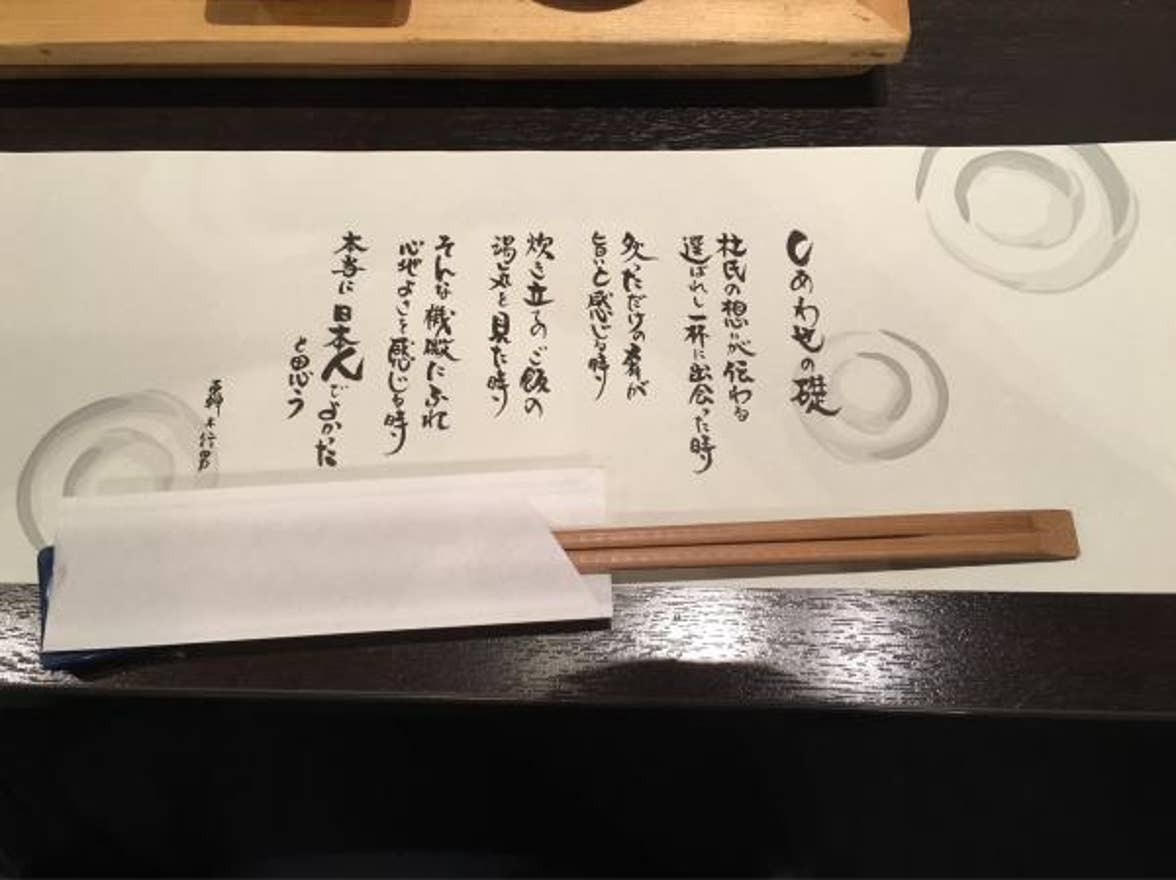 しあわせの礎
杜氏の想いが伝わる
選ばれし一杯に出会った時
炙っただけの肴が
旨いと感じる時
炊き立てのご飯の
湯気を見た時
そんな機微にふれ
心地よさを感じる時
本当に日本人でよかった
と思う
行男